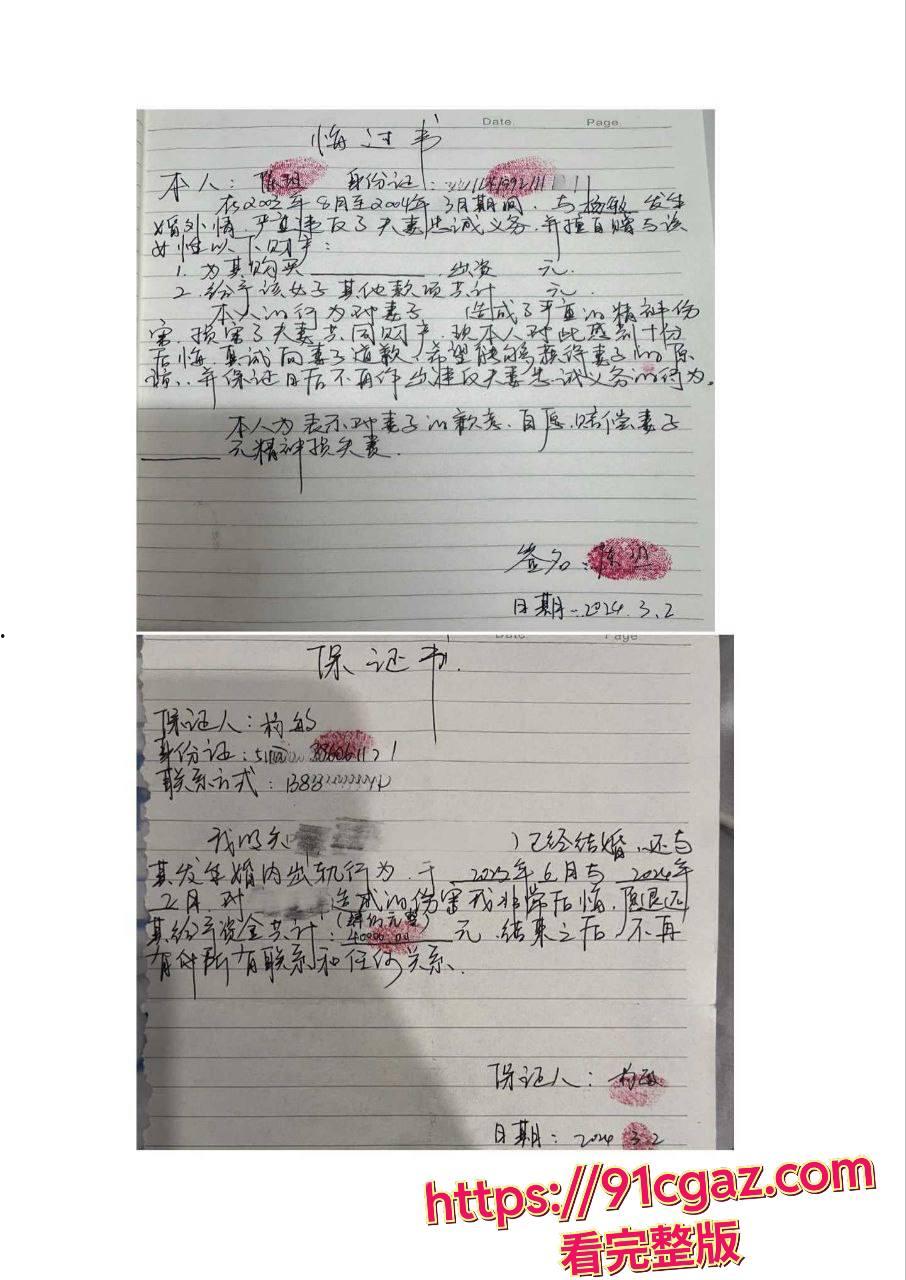 Date. Page.
悔过书
本人: 陈 身份证:
在2003年8月至2004年3月期间,与杨敏发生
婚外情,严重违反了夫妻忠诚义务,并擅自赠与该
女性以下财产:
1. 为其购买 出资 元.
2. 给予该女子其他款项共计 元.
本人的行为对妻子 造成了严重的精神伤
害,损害了夫妻共同财产,现本人对此感到十分
后悔,真诚向妻子道歉,希望能够获得妻子的原
谅,并保证日后不再作出违反夫妻忠诚义务的行为.
本人为表示对妻子的歉意,自愿赔偿妻子
元精神损失费.
签名: 陈
日期: 2024.3.2
Date Page
保证书.
保证人: 杨
身份证:
联系方式: 1383
我明知 )已经结婚,还与
其发生婚内出轨行为,于 年6月与2024年
2月对 造成的伤害我非常后悔,愿退还
其给予资金共计: 40000.00 元,结束之后,不再
有任何联系和任何关系.
保证人: 杨
日期: 2024 3.2
https://91cgaz.com
看完整版